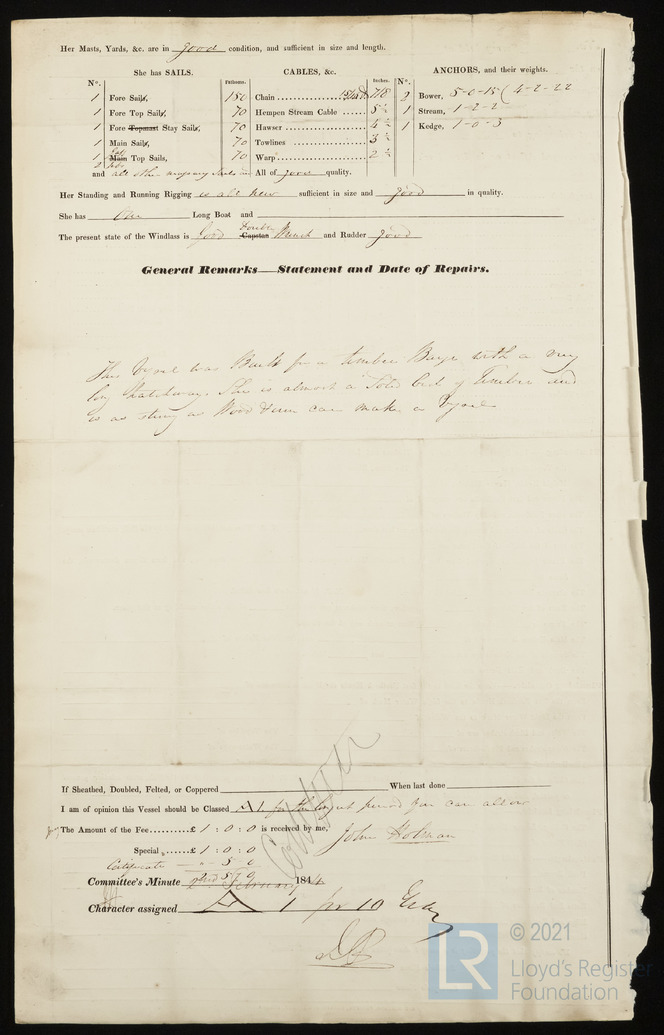 Her Masts, Yards, &c. are in good condition, and sufficient in size and length.
She has SAILS.
CABLES, &c.
ANCHORS, and their weights.
No. Fathoms. Inches. No.
1 Fore Sails, 150 Chain 7/8 2 Bower, 5-0-15 (4-2-22
1 Fore Top Sails, 70 Hempen Stream Cable 5½ 1 Stream, 1-2-2
1 Fore Topmast Stay Sails, 70 Hawser 4½ 1 Kedge, 1-0-3
1 Main Sails, 70 Towlines 3½
1 Main Top Sails, 70 Warp 2½
and all other necessary Sails All of good quality.
Her Standing and Running Rigging is all new sufficient in size and good in quality.
She has One Long Boat and
The present state of the Windlass is Good Capstan Winch and Rudder good
General Remarks—Statement and Date of Repairs.
This Vessel was Built for a timber Barge with a very
long Hatchway. She is almost a Solid bed of Timber and
is as strong as Wood & Iron can make a Vessel
If Sheathed, Doubled, Felted, or Coppered When last done
I am of opinion this Vessel should be Classed A1 for the longest period you can allow
The Amount of the Fee £ 1 : 0 : 0 is received by me, John Holman
Special £ 1 : 0 : 0
Certificate " 5 0
Committee's Minute 2nd February 1844
Character assigned A 1 for 10 Years
© 2021
LR
Lloyd's Register
Foundation